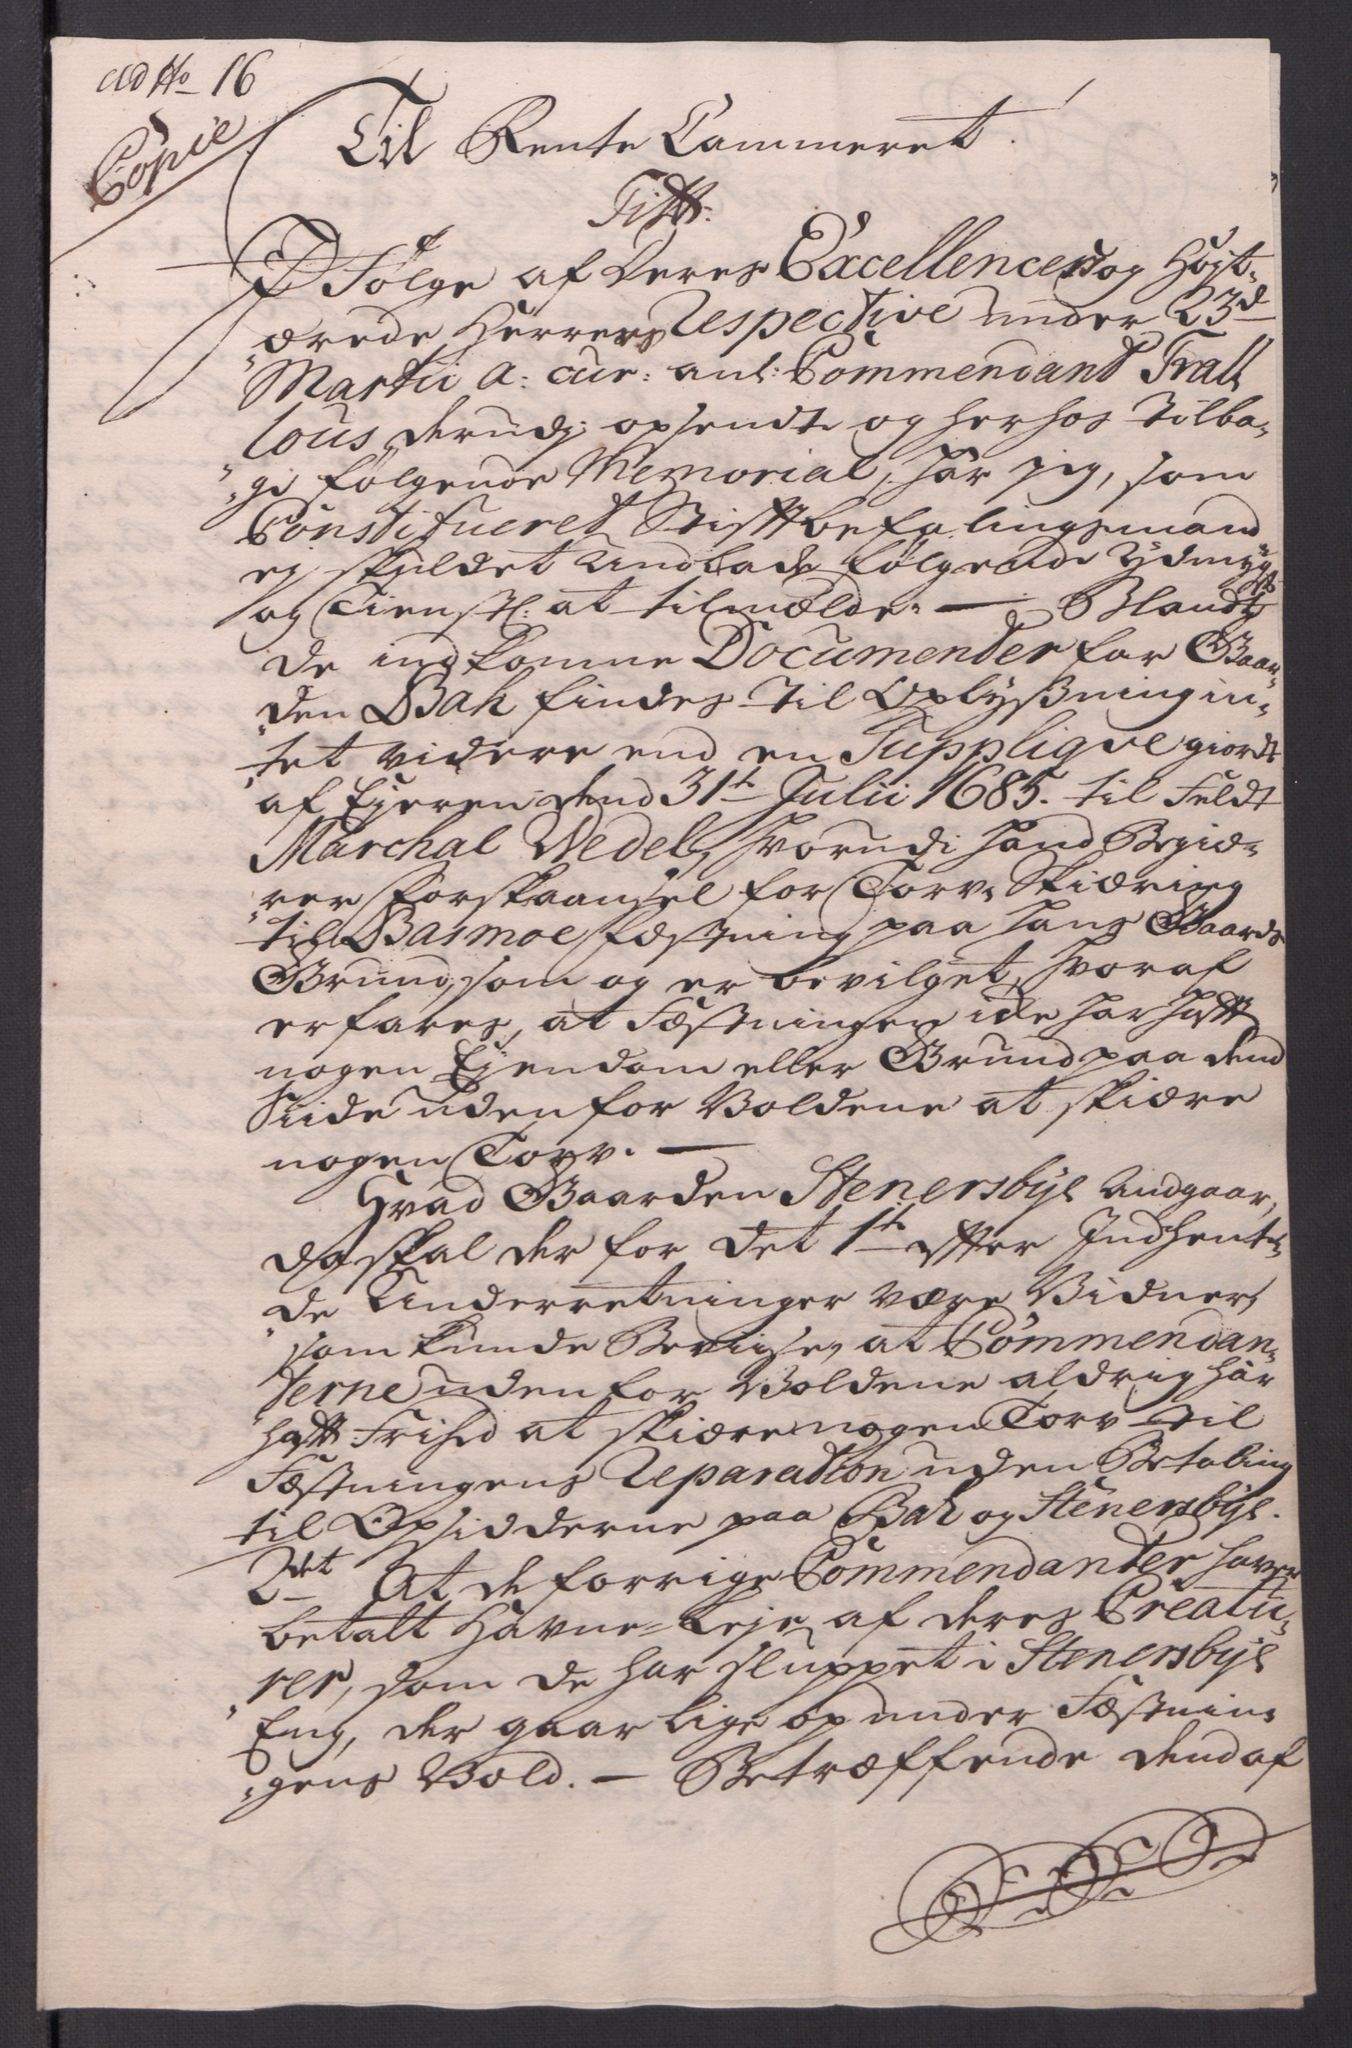 ad No 16
Copie
Til Rente Cammeret.
Titt:
I Følge af Deres Excellencer og Høyt-
ærede Herrers Respective under 23d
Martii a: cur: anl: Commendant Trall
lous, derudj opsendte og herhos tilba-
ge følgende Memorial, har jeg, som
Constitueret Stiftbefalingsmand
ej skyldet undlade følgende Ydmygst
og tienstl: at tilmælde. — Blandt
de indkomne Documenter for Gaar-
den Bak findes til Oplysning in-
tet videre end en Supplique giordt
af Ejeren dend 31te Julii 1685. til Feldt
Marchal Wedel, hvorudi hand Begiæ-
rer forskaansel for Torv-Skiæring
til Basmoe fæstning paa hans Gaards
Grund, som og er bevilget, hvoraf
erfares, at Fæstningen icke har haft
nogen Ejendom eller Grund paa dend
Side uden for Voldene at skiære
nogen Torv. —
Hvad Gaarden Stenersbye andgaar,
da skal der for det 1te efter Indhente-
de Underretninger være Vidner,
som kunde Bevise, at Commendan-
terne uden for Voldene aldrig har
haft Frihed at skiære nogen Torv til
Fæstningens Reparation uden Betaling
til Opsidderne paa Bak og Stenersbye.
2det At de forrige Commendanter haver
betalt Havne-Leje af deres Creatu-
rer, som de har sluppet i Stenersbye
Eng, der gaar lige op under Fæstnin-
gens Vold. — Betræffende dend af